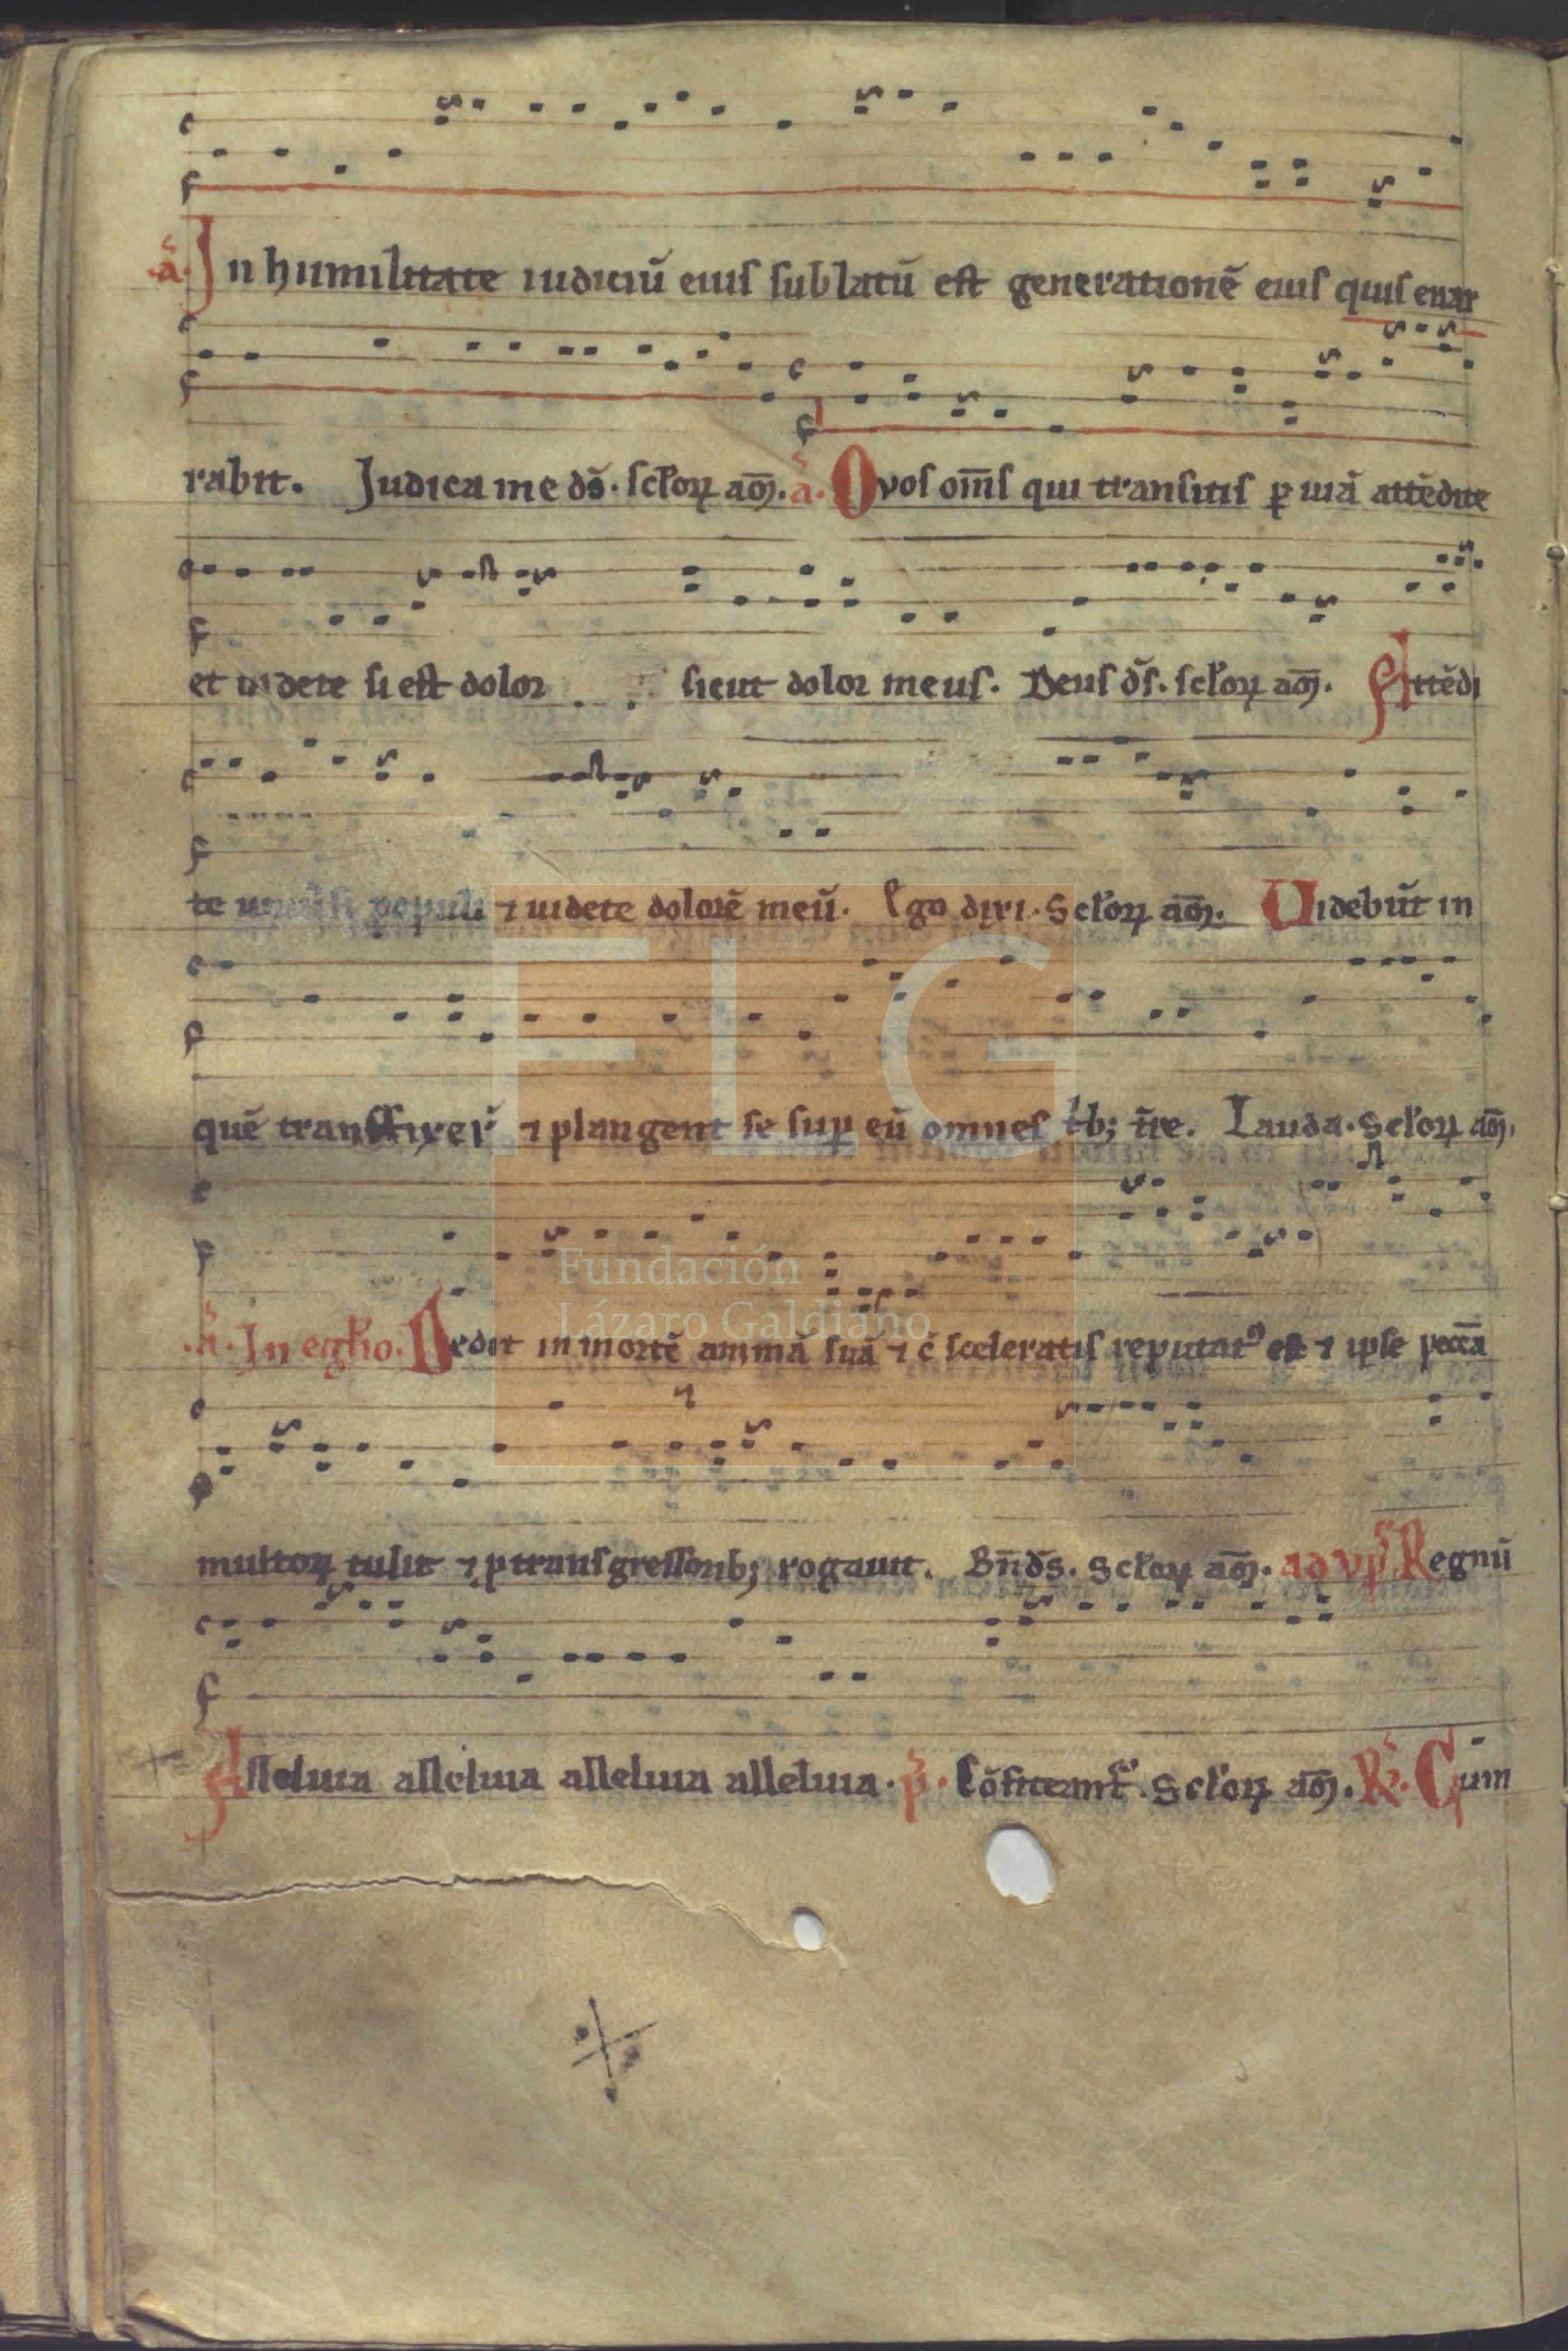 .a. In humilitate iudiciū eius sublatū est generationē eius quis enar
rabit. Judica me ds̄. sclor̄ꝝ am̄. a. O vos om̄s qui transitis ꝑ uiā attēdite
et uidete si est dolor sicut dolor meus. Deus ds̄. sclor̄ꝝ am̄. Attēdi
te uniūsi populi ⁊ uidete dolorē meū. Ego dixi. Sclor̄ꝝ am̄. Uidebūt in
quē transfixer̄ ⁊ plangent se suꝑ eū omnes tb; tr̄e. Lauda. Sclor̄ꝝ am̄.
.a. In eglio. Dedit in mortē animā suā ⁊ c̄ sceleratis reputatꝰ est ⁊ ipse peccā
multoꝝ tulit ⁊ ꝓ transgressorib; rogauit. Bn̄ds. Sclor̄ꝝ am̄. ad vp̄. Regnū
Alleluia alleluia alleluia alleluia. p̄. Cōfiteant̄. Sclor̄ꝝ am̄. ℞. Cum
FLG
Fundación
Lázaro Galdiano